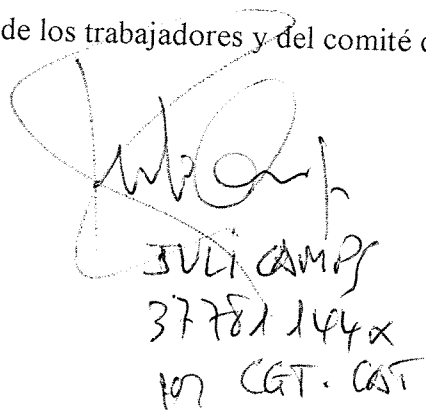 de los trabajadores y del comité
JULI CAMPS
37781144X
por CGT. CAT